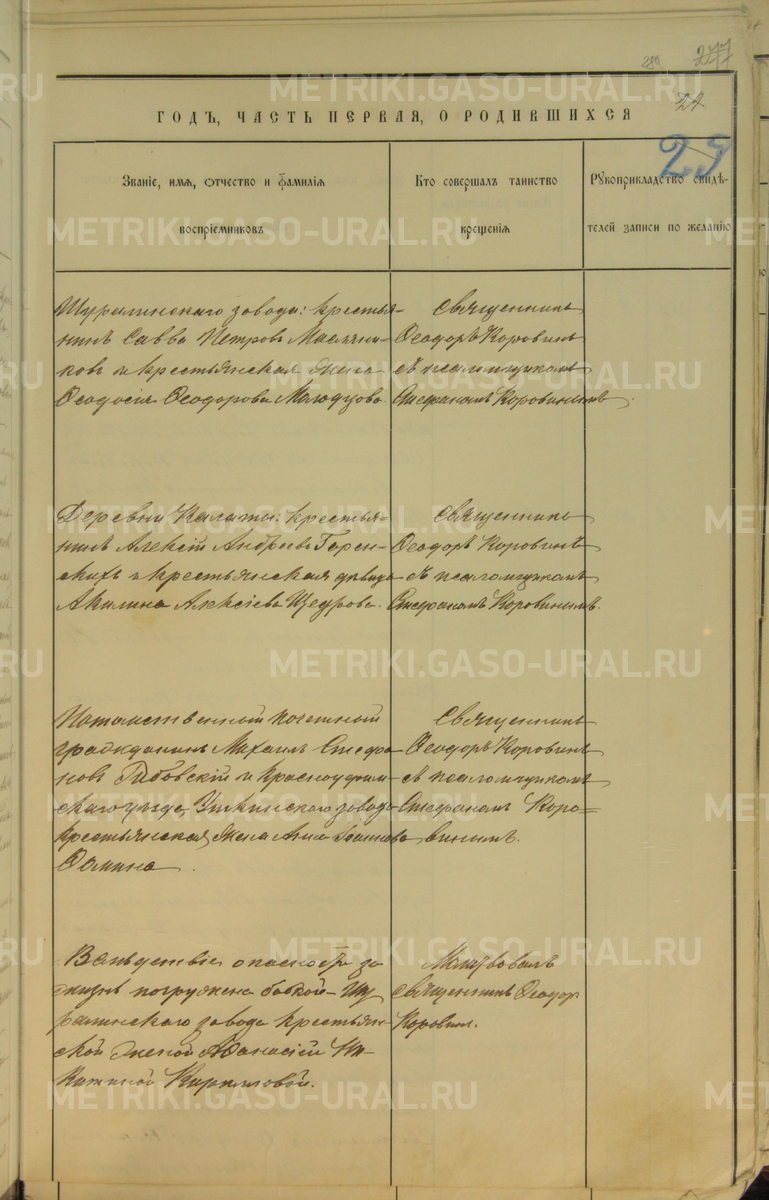 280 277
24
ГОДЪ, ЧАСТЬ ПЕРВАЯ, О РОДИВШИХСЯ
29
Званіе, имя, отчество и фамилія
воспріемниковъ
Кто совершалъ таинство
крещенія
Рукоприкладство свидѣ-
телей записи по желанію
Шуралинскаго завода: крестья-
нинъ Савва Петровъ Масляни-
ковъ и крестьянская жена
Ѳеодосія Ѳеодорова Молодцова
Священникъ
Ѳеодоръ Коровинъ
съ псаломщикомъ
Стефаномъ Коровинымъ.
Деревни Калаты: крестья-
нинъ Алексій Андреевъ Горен-
скихъ и крестьянская девица
Акилина Алексіева Щедрова.
Священникъ
Ѳеодоръ Коровинъ
съ псаломщикомъ
Стефаномъ Коровинымъ.
Потомственный почетный
гражданинъ Михаилъ Стефа-
новъ Гибовскій и Красноуфим-
скаго уѣзда, Уткинскаго завода
крестьянская жена Анна Іоаннова
Ѳомина.
Священникъ
Ѳеодоръ Коровинъ
съ псаломщикомъ
Стефаномъ Коро-
винымъ.
Вслѣдствіе опасности за
жизнь погружена бабкой Шу-
ралинскаго завода крестьян-
ской женой Аѳанасіей Ни-
китиной Кирилловой.
Молитвовалъ
священникъ Ѳеодор
Коровинъ.
METRIKI.GASO-URAL.RU